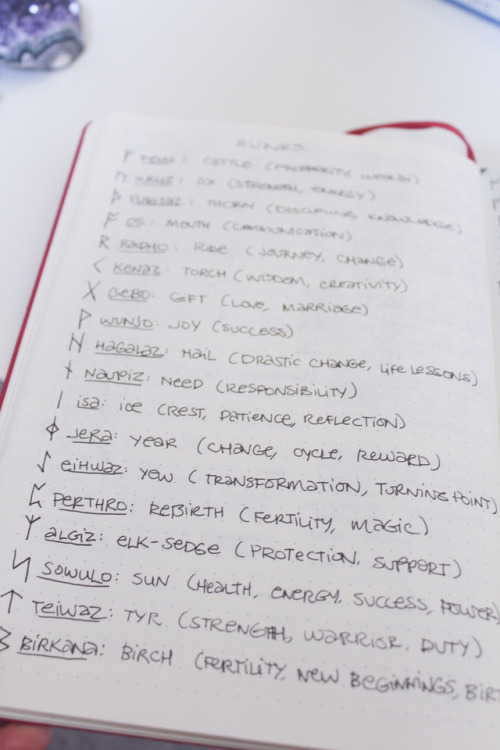 RUNES
ᚠ FEHU: CATTLE (PROSPERITY, WEALTH)
ᚢ URUZ: OX (STRENGTH, ENERGY)
ᚦ THORN (DISCIPLINE, KNOWLEDGE)
ᚩ OS: MOUTH (COMMUNICATION)
ᚱ RAIDHO: RIDE (JOURNEY, CHANGE)
ᚲ KENAZ: TORCH (WISDOM, CREATIVITY)
ᚷ GEBO: GIFT (LOVE, MARRIAGE)
ᚹ WUNJO: JOY (SUCCESS)
ᚺ HAGALAZ: HAIL (DRASTIC CHANGE, LIFE LESSONS)
ᚾ NAUPIZ: NEED (RESPONSIBILITY)
ᛁ ISA: ICE (REST, PATIENCE, REFLECTION)
ᛄ JERA: YEAR (CHANGE, CYCLE, REWARD)
ᛇ EIHWAZ: YEW (TRANSFORMATION, TURNING POINT)
ᛈ PERTHRO: REBIRTH (FERTILITY, MAGIC)
ᛉ ALGIZ: ELK-SEDGE (PROTECTION, SUPPORT)
ᛋ SOWULO: SUN (HEALTH, ENERGY, SUCCESS, POWER)
ᛏ TEIWAZ: TYR (STRENGTH, WARRIOR, DUTY)
ᛒ BIRKANA: BIRCH (FERTILITY, NEW BEGINNINGS, BIRT